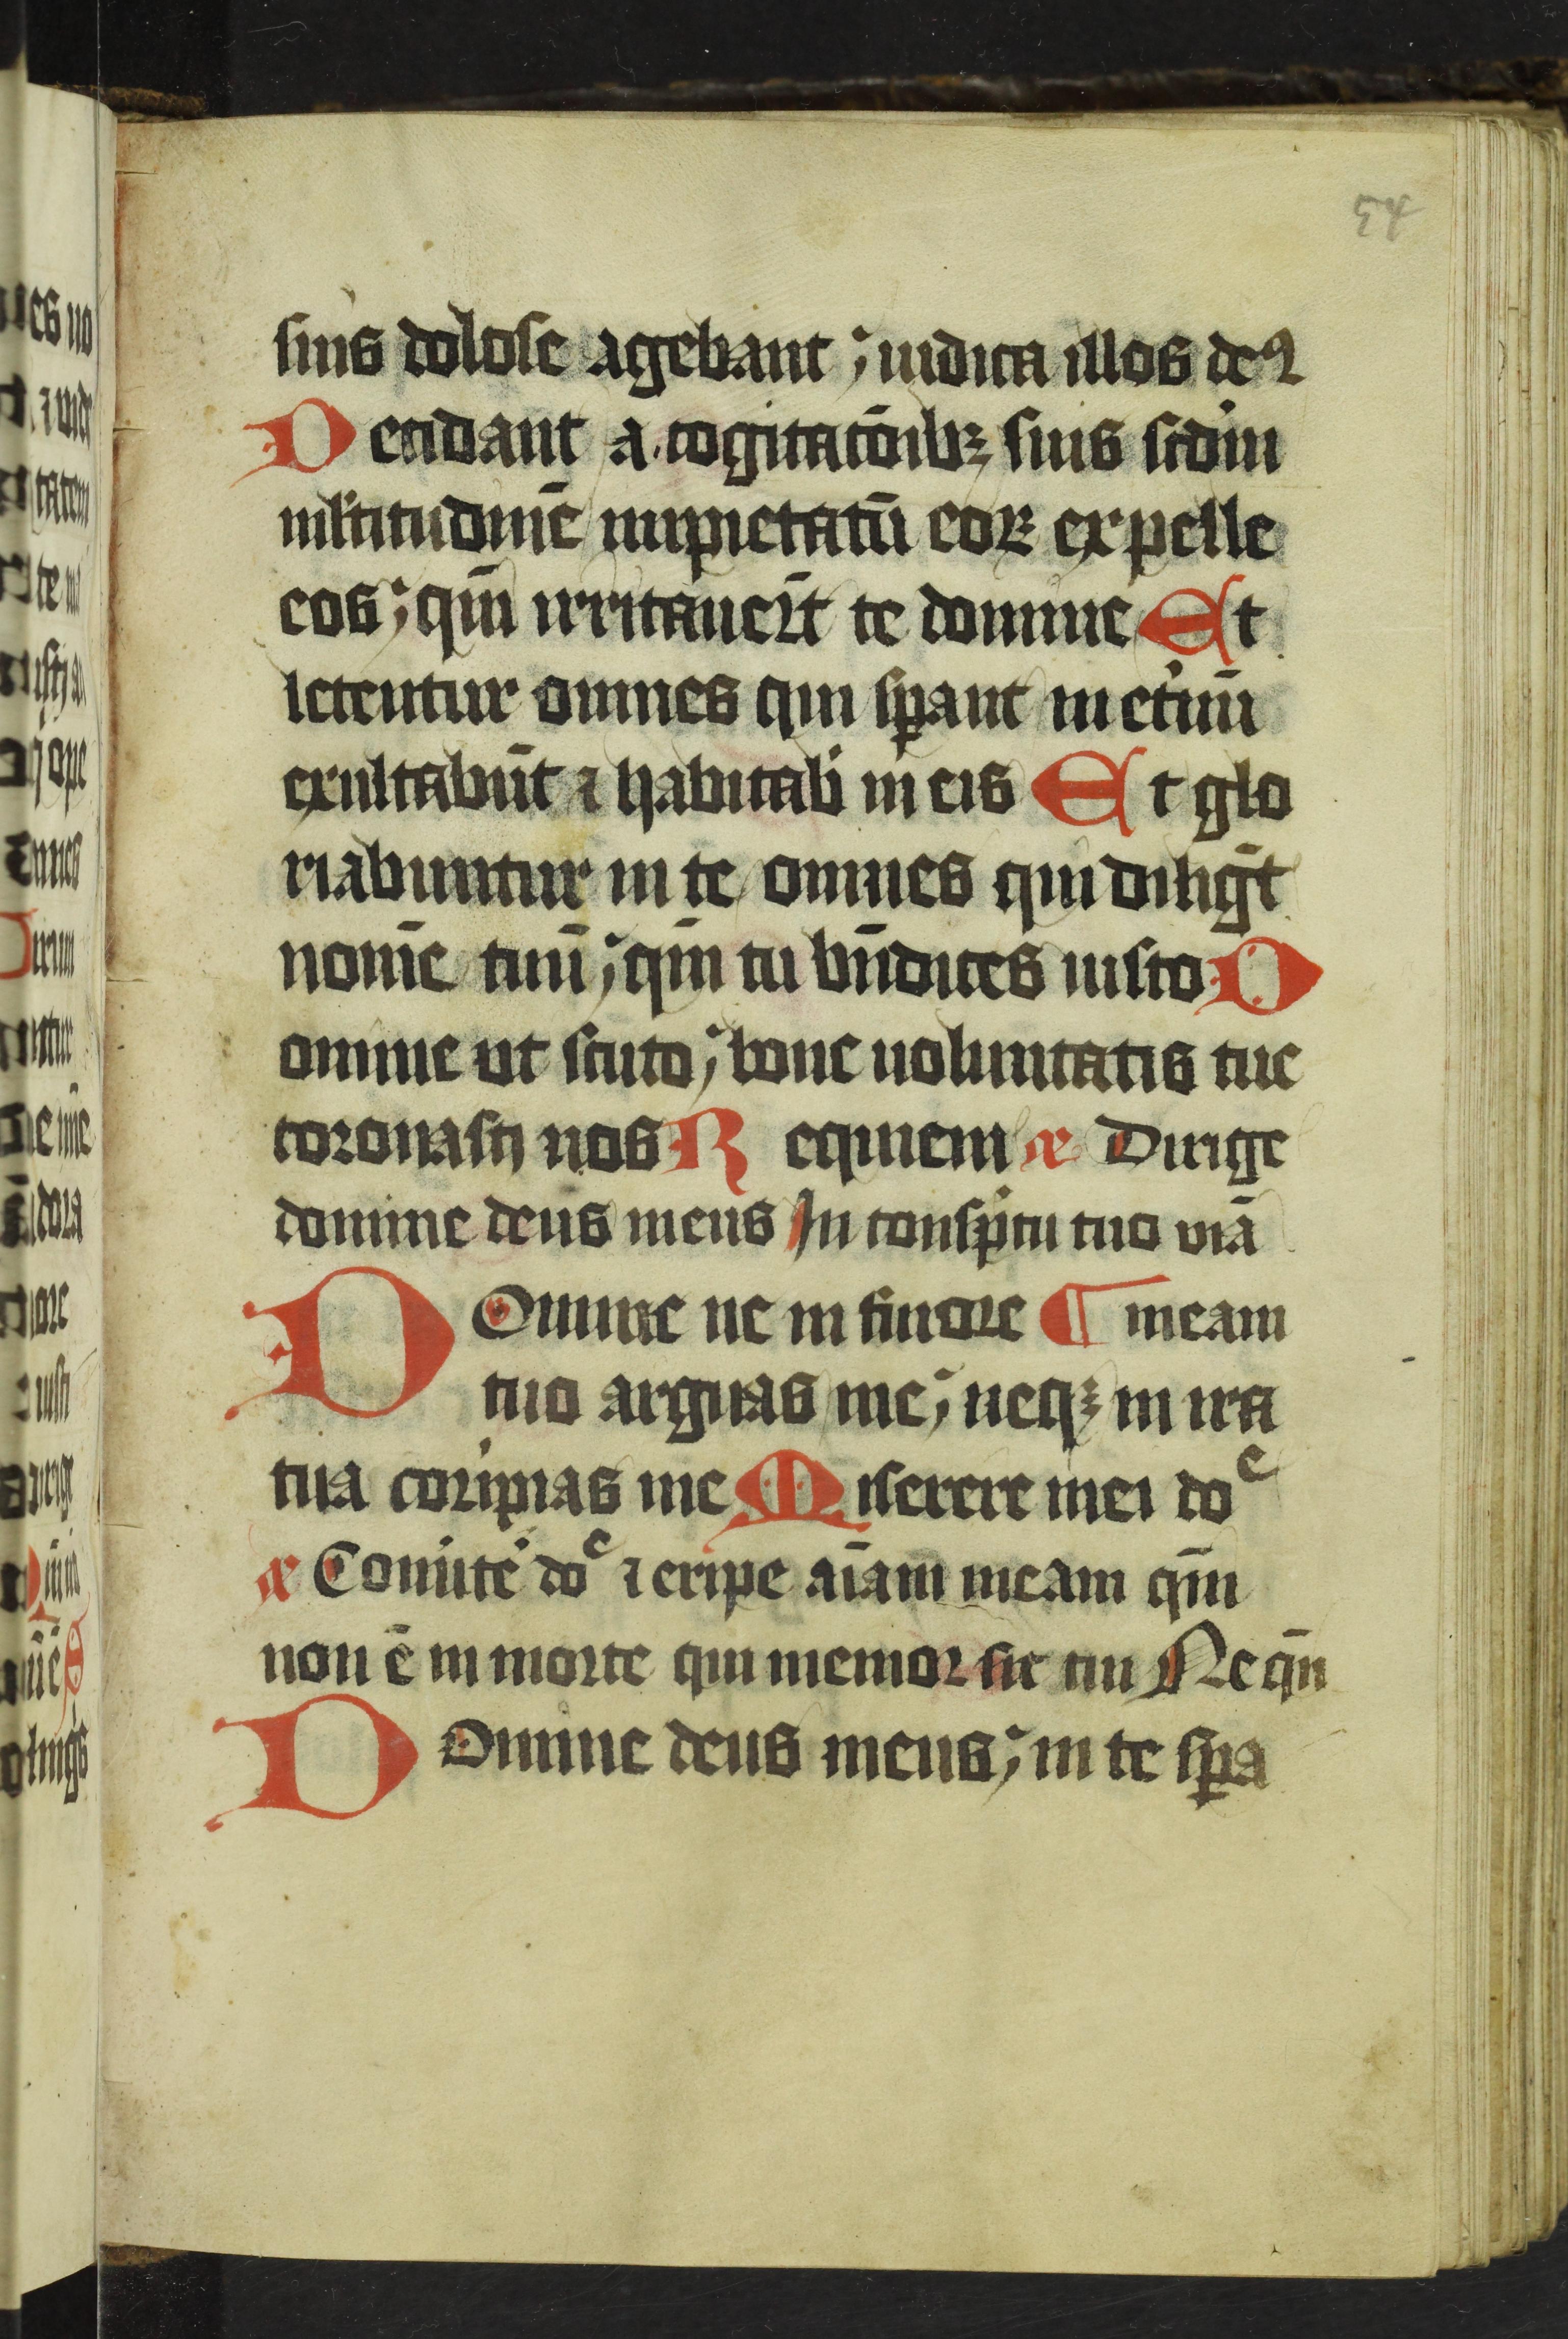 54
suis dolose agebant ; iudica illos deꝰ
Decidant a cogitac̄oībꝫ suis scd̾m
ml̾titudinē impietatū eoꝝ expelle
eos ; qm̄ irritauer̄t te domine Et
letentur omnes qui sꝑant in et̾nū
exultabūt ⁊ habitab̾ in eis Et glo
riabuntur in te omnes qui diligūt
nomē tuū ; qm̄ tu bn̄dices iusto D
omine ut scuto ; bone uoluntatis tue
coronasti nos Requiem æ Dirige
domine deus meus In consp̄tu tuo uiā
Domine ne in furore ¶ meam
tuo arguas me ; neqꝫ in ira
tua coripias me Miserere mei doͤ
æ Conuite̾ doͤ ⁊ eripe aīam meam qm̄
non ē in morte qui memor sit tui Ne qn̄
Domine deus meus ; in te sꝑa